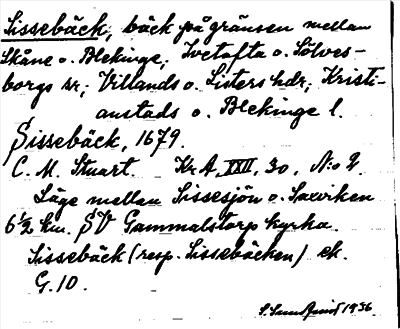 Sissebäck, bäck på gränsen mellan
Skåne o. Blekinge, Ivetofta o. Sölves-
borgs sr; Villands o. Listers hdr; Kristi-
anstads o. Blekinge l.
Sissebäck, 1679.
C. M. Stuart. Kr.A. XXII, 30, N:o 2.
Läge mellan Sissesjön o. Saxviken
6 1/2 km. SV Gammalstorp kyrka.
Sissebäck (resp. Sissebäcken) ek.
G. 10.
S. Sundquist 1936